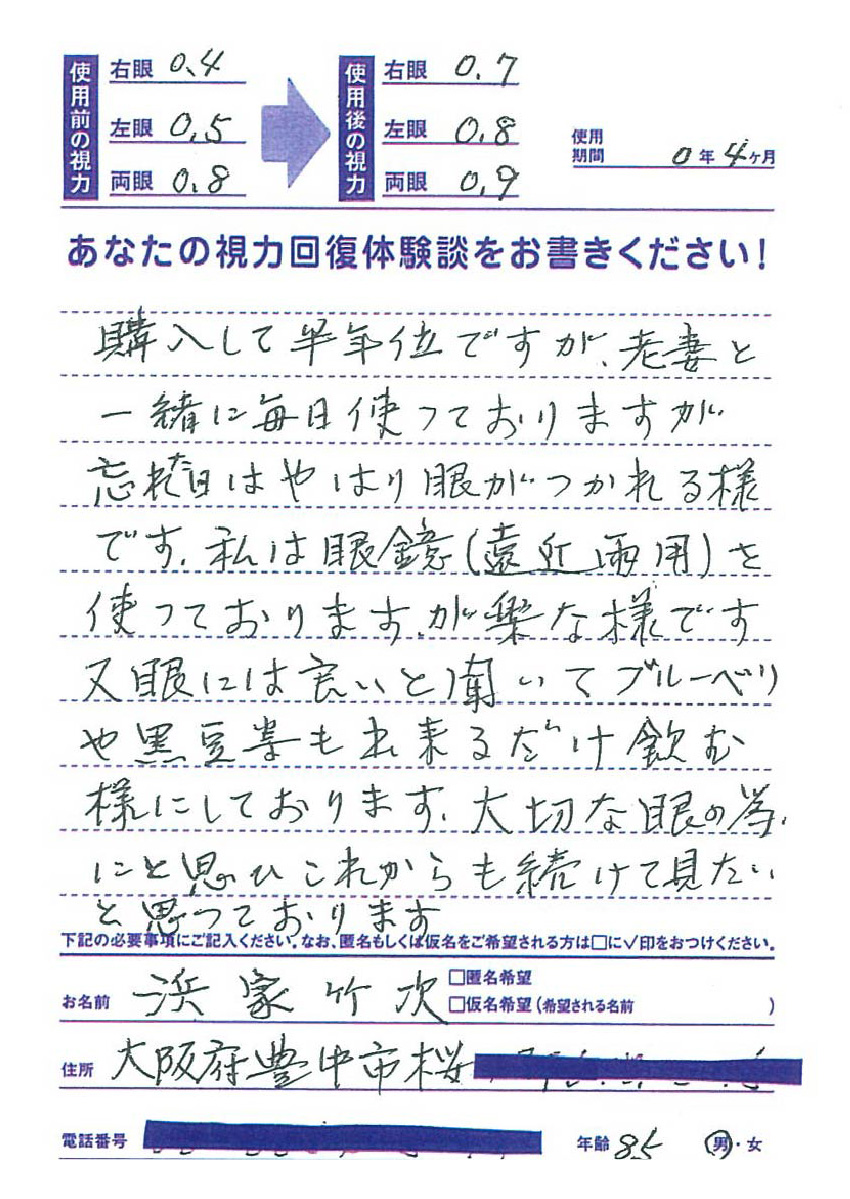 使用前の視力
右眼 0.4
左眼 0.5
両眼 0.8
使用後の視力
右眼 0.7
左眼 0.8
両眼 0.9
使用期間 0年4ヶ月
あなたの視力回復体験談をお書きください!
購入して半年位ですが、老妻と
一緒に毎日使つておりますが
忘れた日はやはり眼がつかれる様
です。私は眼鏡(遠近両用)を
使つております。が楽な様です
又眼には良いと聞いてブルーベリ
や黒豆等も出来るだけ飲む
様にしております。大切な眼の為
にと思ひこれからも続けて見たい
と思つております
下記の必要事項にご記入ください。なお、匿名もしくは仮名をご希望される方は□に✓印をおつけください。
お名前 浜家竹次
□匿名希望
□仮名希望(希望される名前 )
住所 大阪府豊中市桜
電話番号
年齢 85 男・女